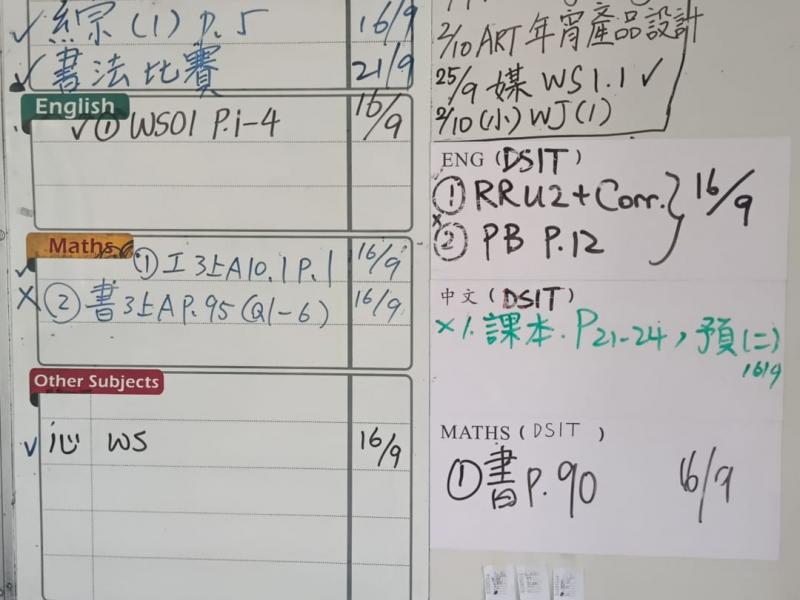 ✓ 綜(1) P.5 16/9
✓ 書法比賽 21/9
English
✓ ① WS01 P.i-4 16/9
Maths
✓ ① 工 3上A10.1 P.1 16/9
X ② 書 3上A P.95 (Q1-6) 16/9
Other Subjects
✓ 心 WS 16/9
2/10 ART 年宵產品設計
25/9 媒 WS 1.1 ✓
2/10 (小) WJ(1)
ENG (DSIT)
① RRU2 + Corr. } 16/9
x ② PB P.12
中文 (DSIT)
x 1. 課本. P21-24, 預(二)
16/9
MATHS (DSIT)
① 書 P.90 16/9